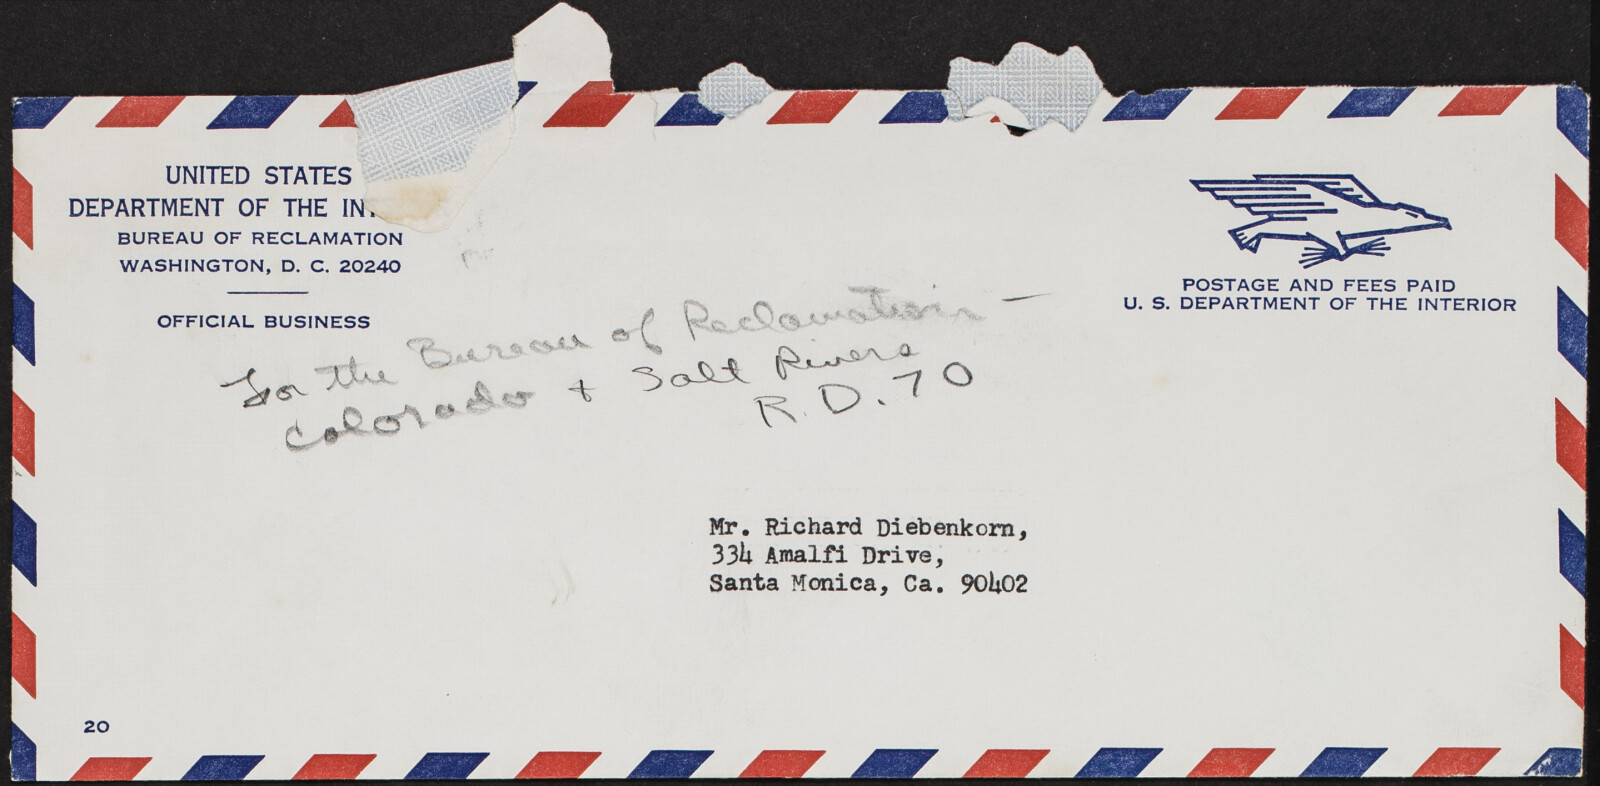 UNITED STATES
DEPARTMENT OF THE IN
BUREAU OF RECLAMATION
WASHINGTON, D. C. 20240
OFFICIAL BUSINESS
POSTAGE AND FEES PAID
U. S. DEPARTMENT OF THE INTERIOR
For the Bureau of Reclamation —
Colorado + Salt Rivers
R.D. 70
Mr. Richard Diebenkorn,
334 Amalfi Drive,
Santa Monica, Ca. 90402
20